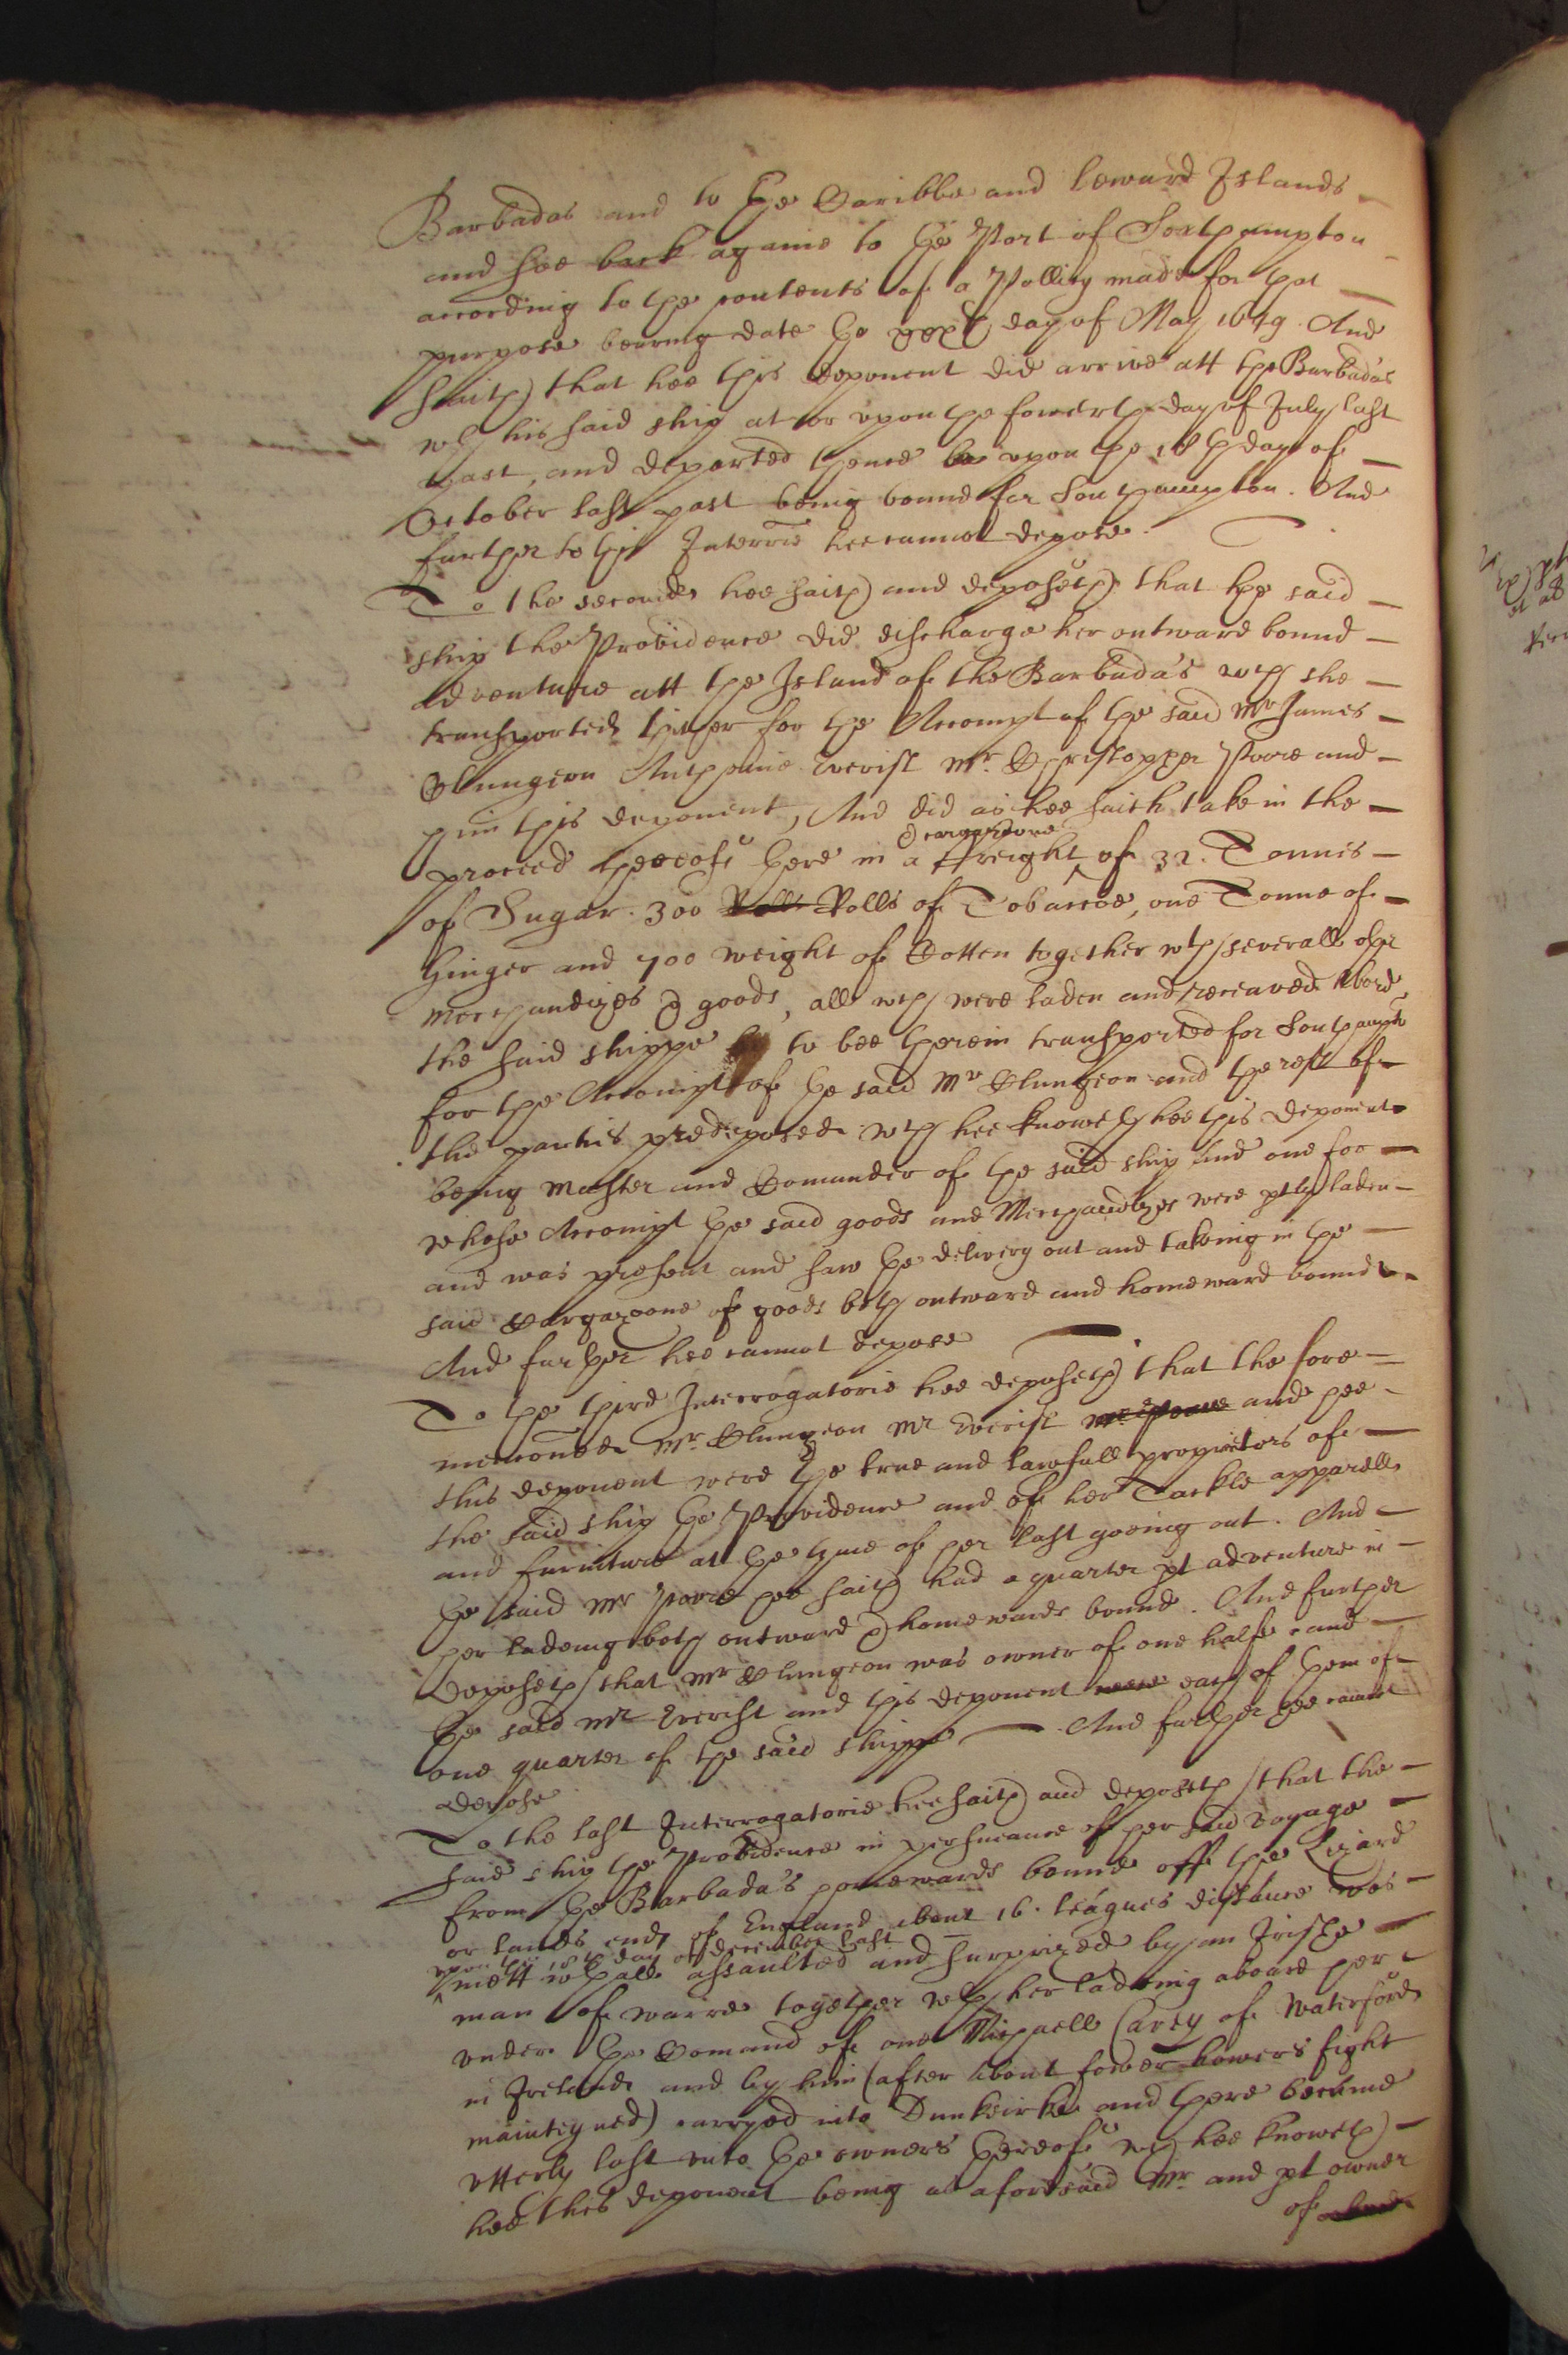 Barbadas and to the Caribbe and Leward Islands
and soe back againe to the Port of Southampton
according to the contents of a Pollicy made for that
purpose bearing date the day of May 1649. And
saith that hee this deponent did arrive att the Barbadas
wth his said ship at or upon the fowerth day of July last
past, and departed thence upon the 18th day of
October last past being bound for Southampton. And
further to this Interrie hee cannot depose.
To the second hee saith and deposeth that the said
ship the Providence did discharge her outward bound
adventure att the Island of the Barbada's wch she
transported thither for the Accompt of the said Mr James
Clungeon Anthonie Everist Mr. Christopher Poore and
him this deponent, And did as hee saith take in the
proceed thereof there in a freight & cargazone of 32. Tonnes
of Sugar. 300 Rolls Rolls of Tobaccoe, one Tonne of
Ginger and 700 weight of Cotten together wth severall other
merchandizes & goods, all wch were laden and receaved abord
the said shippe to bee therein transported for Southampto
for the Accompt of the said Mr Clungeon and the rest of
the parties predeposed. wch hee knoweth hee this deponent
being master and Comander of the said ship and one for
whose Accompt the said goods and Merchandizes were ptly laden
and was present and saw the delivery out and takeing in the
said Cargazone of goods both outward and homeward bound
And further hee cannot depose
To the third Interrogatorie hee deposeth that the fore
mencioned Mr. Clungeon Mr Everist Mr Poore and hee
this deponent were the true and lawfull proprietors of
the said ship the Providence and of her Tackle apparell
and furniture at the tyme of her last goeing out. And
the said Mr Poore hee saith had a quarter pt adventure in
her ladeing both outward & homewards bound. And further
deposeth that Mr Clungeon was owner of one halfe and
the said Mr Everist and this deponent were each of them of
one quarter of the said shippe And further hee cannot
depose
To the last Interrogatorie hee saith and deposeth that the
said ship the Providence in performance of her said voyage
from the Barbada's homewards bound off the Lizard
or lands end of England about 16. leagues distance was
upon the 18th day of december last
mett wthall assaulted and surprized by an Irishe
man of warre together wth her ladeing aboard her
under the Comand of one Michaell Carey of Waterford
in Ireland and by him (after about fower howers fight
mainteyned) carryed into Dunkeirke and there became
utterly lost unto the owners thereof wch hee knoweth
hee this deponent being as aforesaid Mr. and pt owner
of